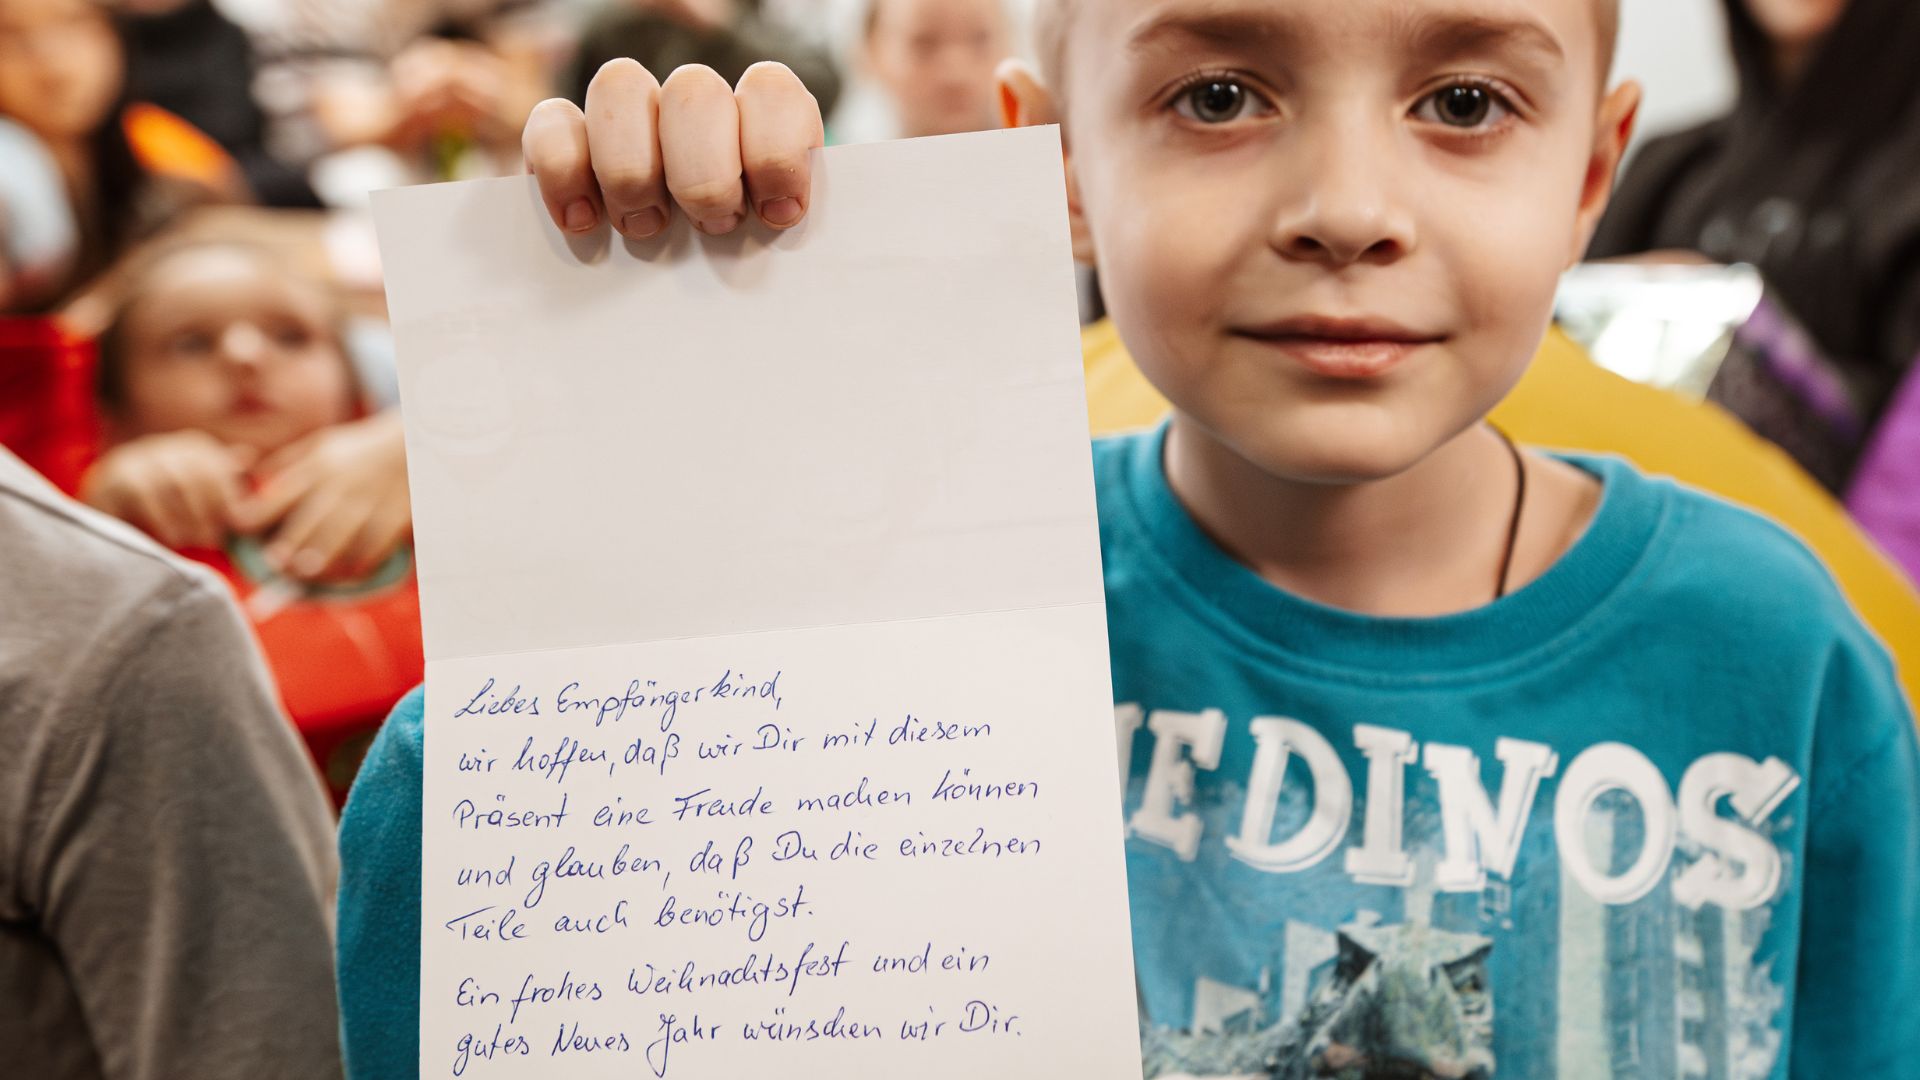 Liebes Empfängerkind,
wir hoffen, daß wir Dir mit diesem
Präsent eine Freude machen können
und glauben, daß Du die einzelnen
Teile auch benötigst.
Ein frohes Weihnachtsfest und ein
gutes Neues Jahr wünschen wir Dir.
DINOS